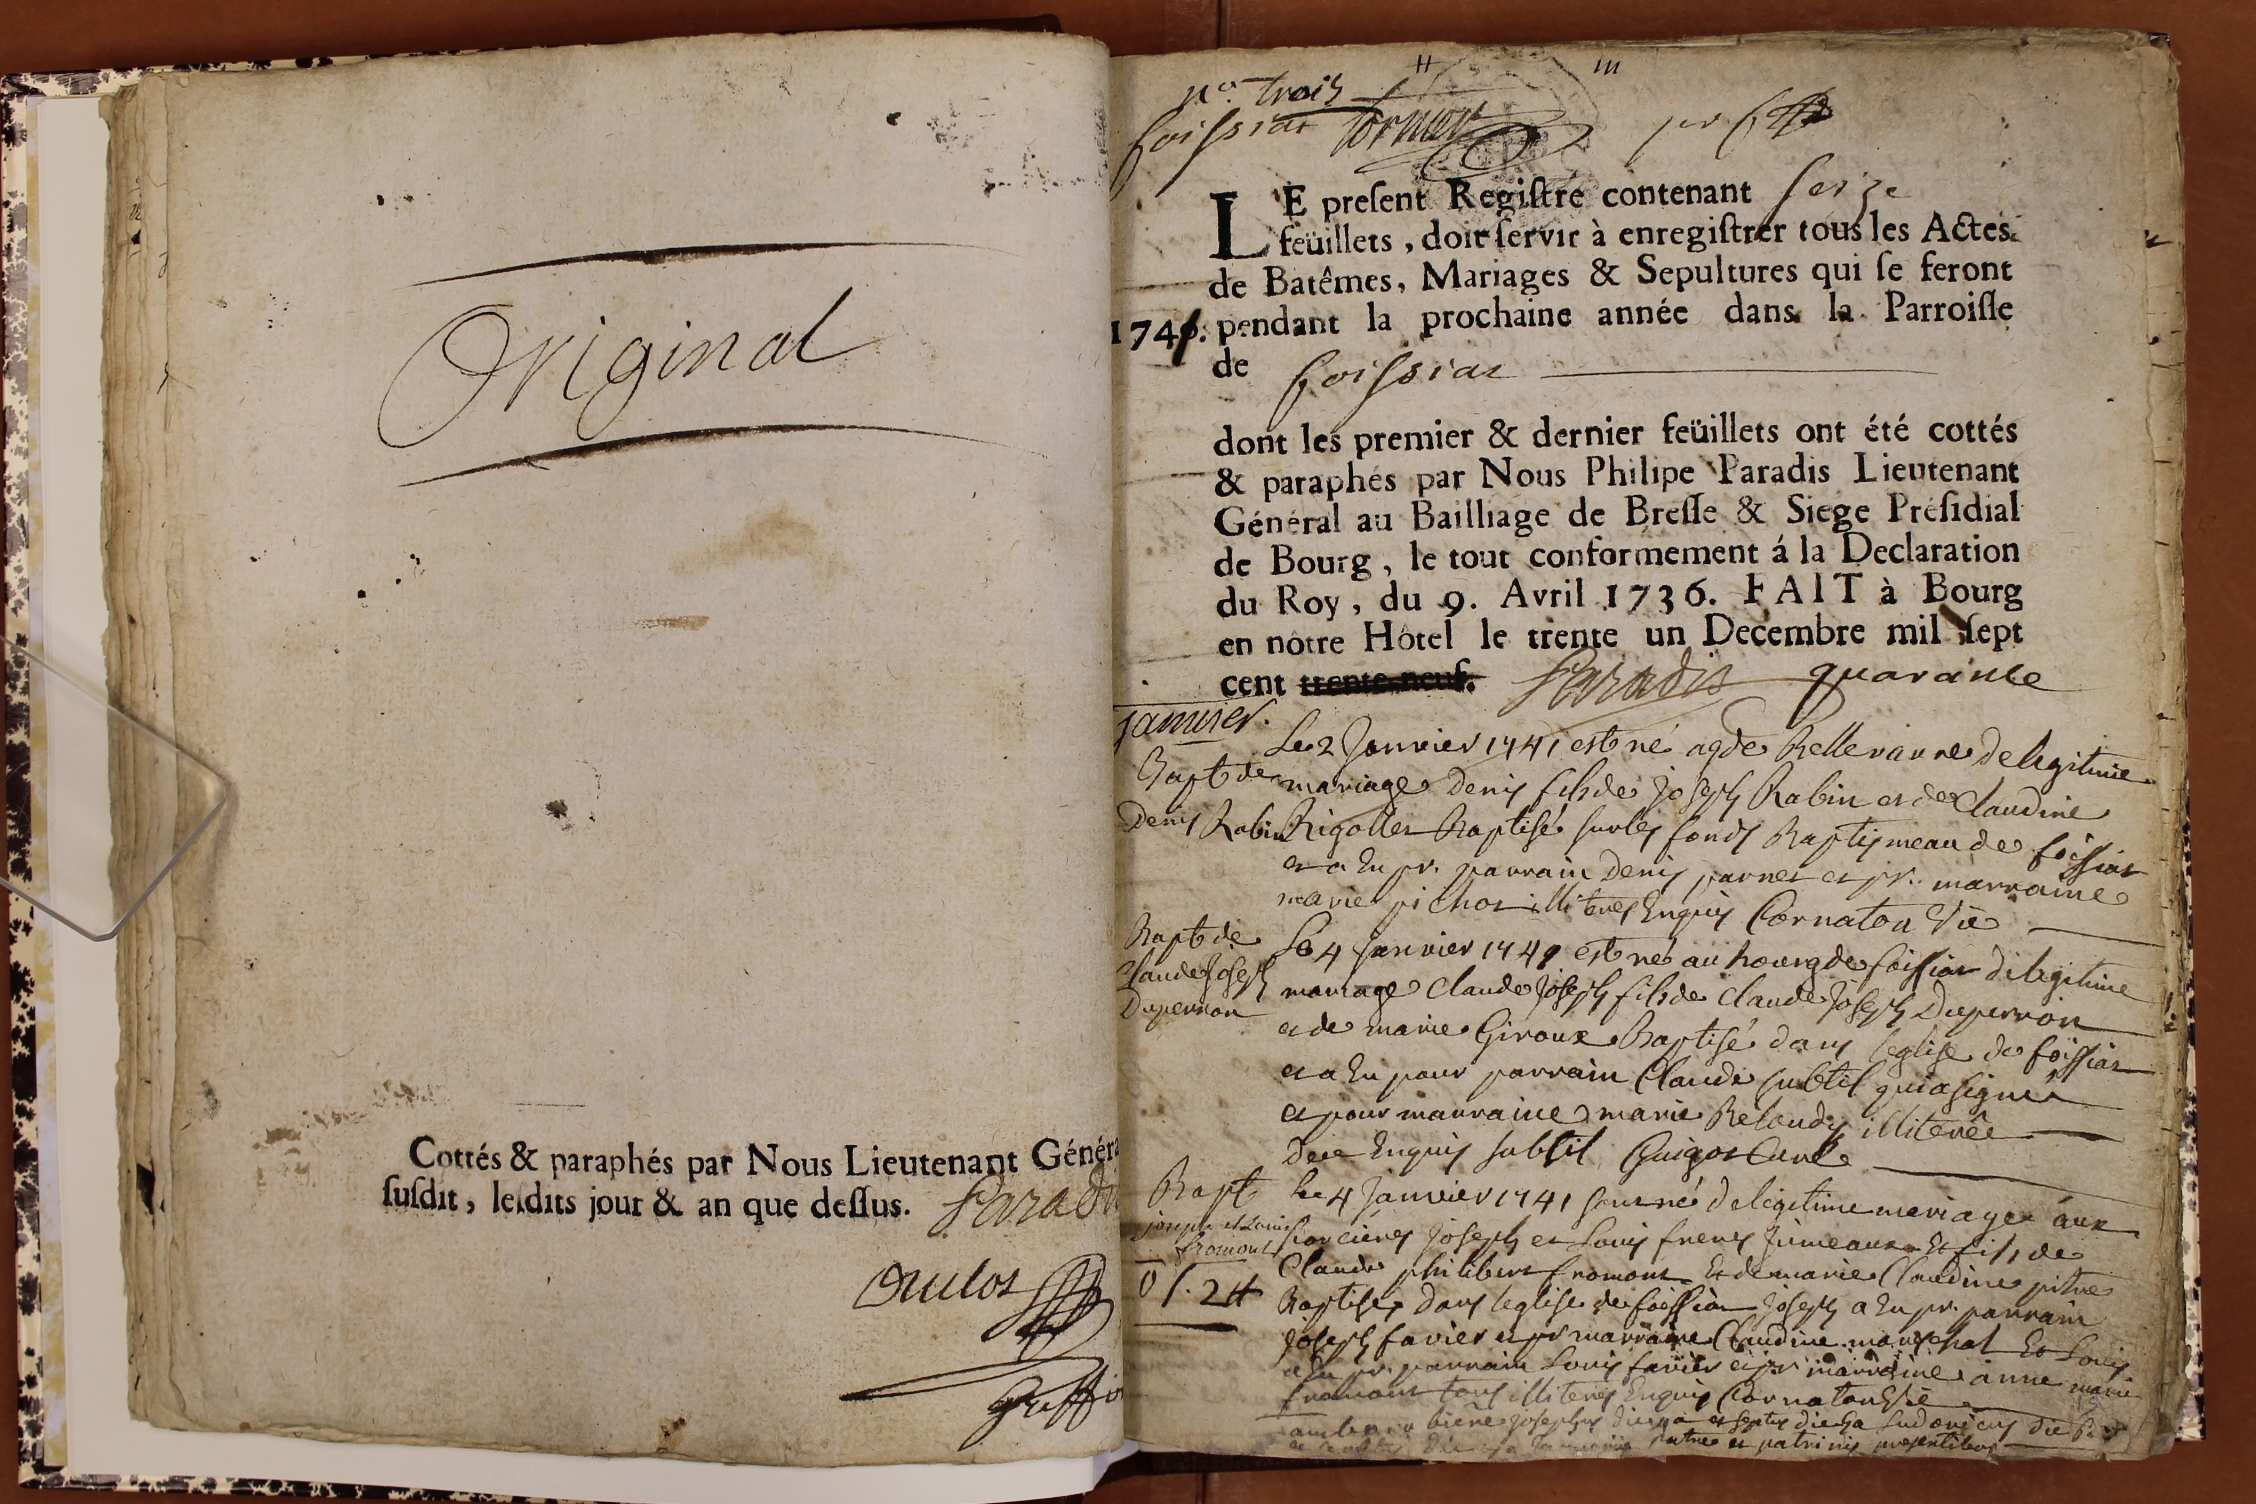 Original
Cottés & paraphés par Nous Lieutenant Généra
susdit, lesdits jour & an que dessus. Paradi
n.o trois
foissiat
LE present Registre contenant seize
feüillets, doit servir à enregistrer tous les Actes
de Batêmes, Mariages & Sepultures qui se feront
1741. pendant la prochaine année dans la Parroisse
de foissiat
dont les premier & dernier feüillets ont été cottés
& paraphés par Nous Philipe Paradis Lieutenant
Général au Bailliage de Bresse & Siege Présidial
de Bourg, le tout conformement á la Declaration
du Roy, du 9. Avril 1736. FAIT à Bourg
en nôtre Hôtel le trente un Decembre mil sept
cent trente-neuf. Paradis quarante
janvier.
Bapt de
Denis Robin
Le 2 Janvier 1741 est né de legitime
mariage Denis fils de Joseph Robin et de Claudine
Rigollet Baptisé sur les fonds Baptismeau de foissiat
et a Eu pr. parrain Denis parnet et pr. marraine
marie pichot illiterés Enquis Cornaton Vic
Bapt de
Claude Joseph
Duperron
Le 4 Janvier 1741 est né au bourg de foissiat de legitime
mariage Claude Joseph fils de Claude Joseph Duperron
et de marie Giroux Baptisé dans leglise de foissiat
et a Eu pour parrain Claude subtil qui a signé
et pour marraine marie illiterée
Enquis subtil Guigot Curé
Bapt
joseph et Louis
fromont
le 4 Janvier 1741 sont né de legitime mariage aux
Joseph et Louis freres Jumeaux Et fils de
Claude philibert fromont Et de marie Claudine pitre
Baptisés dans leglise de foissiat Joseph a Eu pr. parrain
Joseph favier et pr marraine Claudine mareschal Et Louis
a Eu pr. parrain Louis favier et pr marraine anne marie
fromont tous illiterés Enquis Cornaton Vic
patre et patrinis presentibus